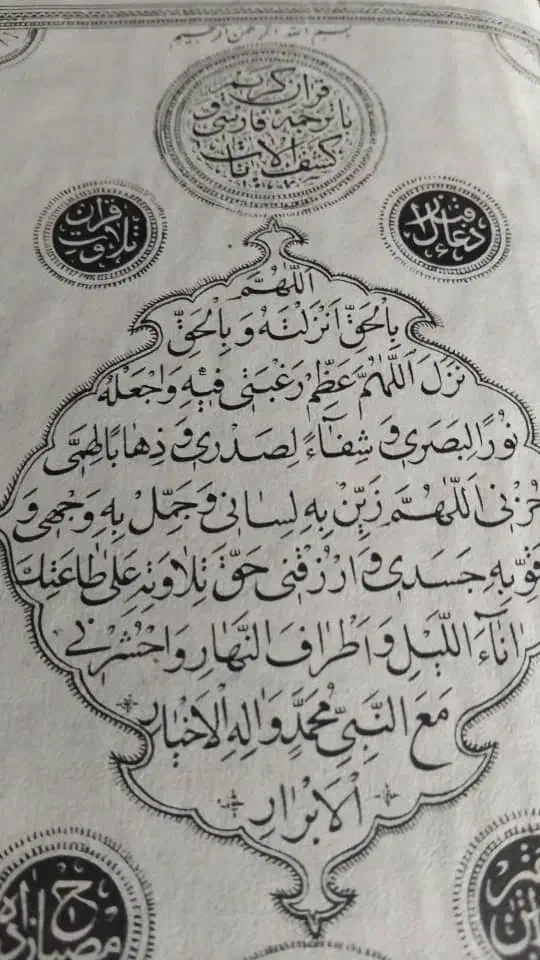 بسم الله الرحمن الرحیم
قرآن کریم
با ترجمهٔ فارسی و
کشف الآیات
دعاء قبل از
تلاوت قرآن
اَللّٰهُمَّ
بِالْحَقِّ اَنْزَلْتَهُ وَ بِالْحَقِّ
نَزَلَ اَللّٰهُمَّ عَظِّمْ رَغْبَتی فیهِ وَاجْعَلْهُ
نُورًا لِبَصَری وَ شِفٰآءً لِصَدْری وَ ذِهٰابًا لِهَمّی
حُزْنی اَللّٰهُمَّ زَیِّنْ بِهِ لِسٰانی وَ جَمِّلْ بِهِ وَجْهی وَ
قَوِّ بِهِ جَسَدی وَ ارْزُقْنی حَقَّ تِلٰاوَتِهِ عَلیٰ طٰاعَتِكَ
اٰنٰآءَ اللَّیْلِ وَ اَطْرٰافَ النَّهٰارِ وَاحْشُرْنی
مَعَ النَّبِیِّ مُحَمَّدٍ وَ اٰلِهِ الْاَخْیٰارِ
الْاَبْرٰارِ
ح
مصباح‌زاده